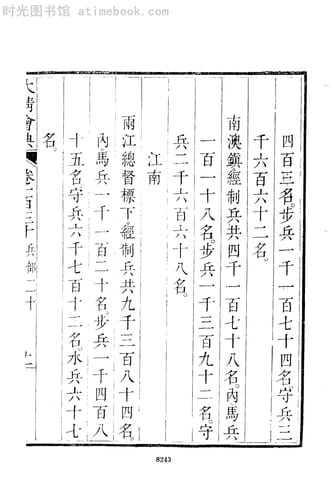 时光图书馆 atimebook.com
四百三名。步兵一千一百七十四名。守兵二
千六百六十二名。
南澳鎮經制兵共四千一百七十八名。內馬兵
一百一十八名。步兵一千三百九十二名。守
兵二千六百六十八名。
江南
兩江總督標下經制兵共九千三百八十四名。
內馬兵一千一百二十名。步兵一千四百八
十五名。守兵六千七百十二名。水兵六十七
名。
大淸會典 卷一百三十 兵部二十
8243